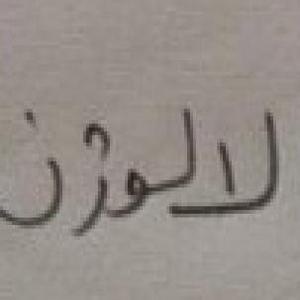 لالوژن